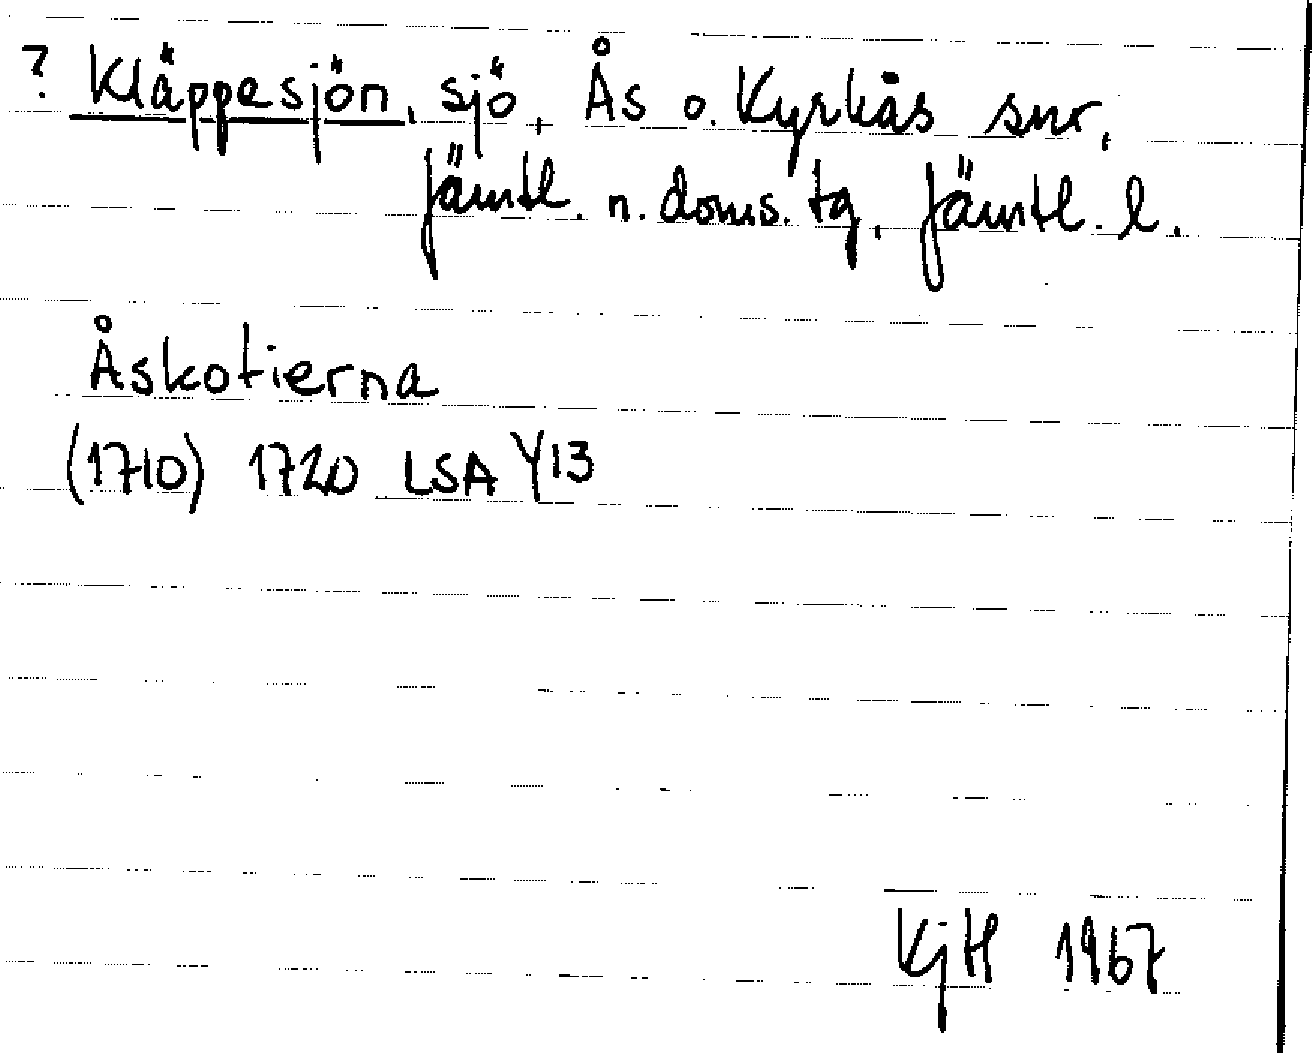 ? Kläppesjön, sjö, Ås o. Kyrkås snr,
Jämtl. n. doms. tg, Jämtl. l.
Åskotierna
(1710) 1720 LSA Y13
KjH 1967